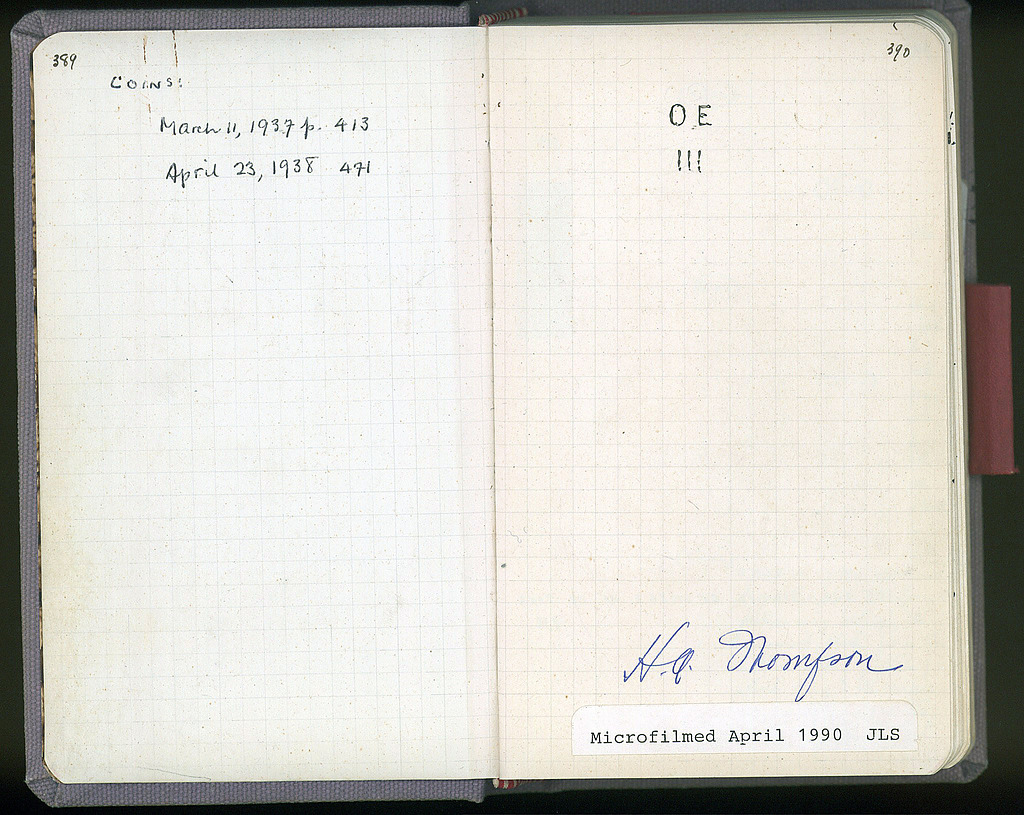 389
COINS:
March 11, 1937 p. 413
April 23, 1938 471
390
OE
III
H.A. Thompson
Microfilmed April 1990 JLS